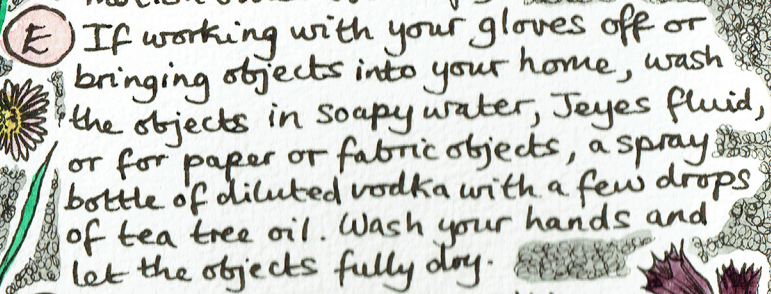 E If working with your gloves off or
bringing objects into your home, wash
the objects in soapy water, Jeyes fluid,
or for paper or fabric objects, a spray
bottle of diluted vodka with a few drops
of tea tree oil. Wash your hands and
let the objects fully dry.